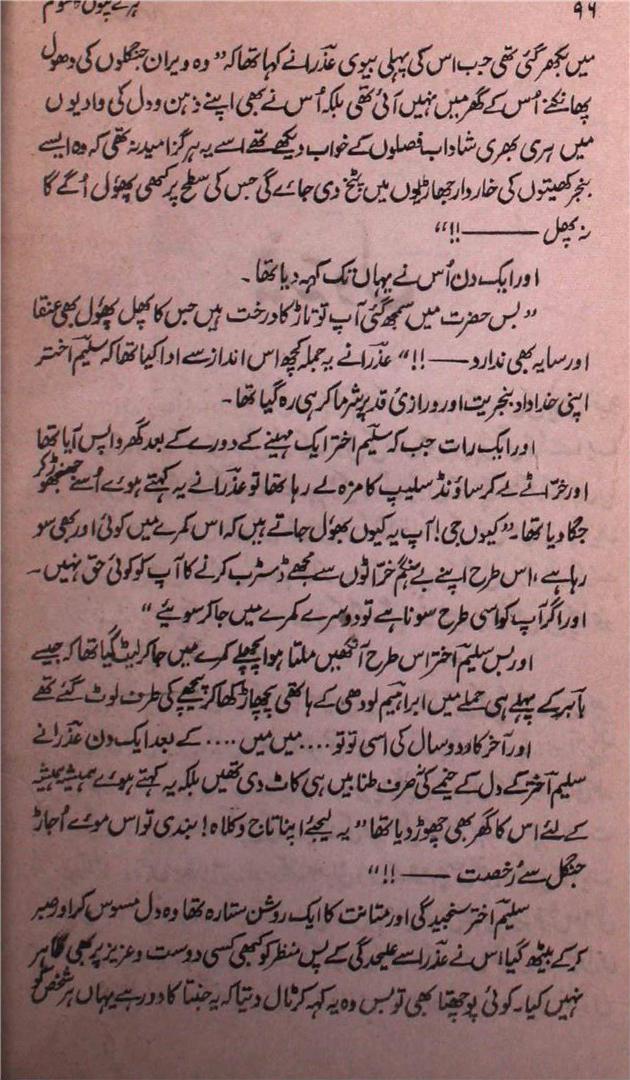 ۹۶
میں بکھر گئی تھی جب اس کی پہلی بیوی عذرا نے کہا تھا کہ ” وہ ویران جنگلوں کی دھول
پھانکنے اُس کے گھر میں نہیں آئی تھی بلکہ اُس نے بھی اپنے ذہن و دل کی وادیوں
میں ہری بھری شاداب فصلوں کے خواب دیکھے تھے اسے یہ ہرگز امید نہ تھی کہ وہ ایسے
بنجر کھیتوں کی خاردار جھاڑیوں میں پٹخ دی جائے گی جس کی سطح پر کبھی پھول اُگے گا
نہ پھل ——— !! “
اور ایک دن اُس نے یہاں تک کہہ دیا تھا ۔
” بس حضرت میں سمجھ گئی آپ تو تاڑ کا درخت ہیں جس کا پھل پھول بھی عنقا
اور سایہ بھی ندارد —— !! “ عذرا نے یہ جملہ کچھ اس انداز سے ادا کیا تھا کہ سلیم اختر
اپنی خداداد بنجریت اور درازئ قد پر شرما کر ہی رہ گیا تھا ۔
اور ایک رات جب کہ سلیم اختر ایک مہینے کے دورے کے بعد گھر واپس آیا تھا
اور خرّاٹے لے کر ساؤنڈ سلیپ کا مزہ لے رہا تھا تو عذرا نے یہ کہتے ہوئے اُسے جھنجھوڑ کر
جگا دیا تھا ۔ ” کیوں جی ! آپ یہ کیوں بھول جاتے ہیں کہ اس کمرے میں کوئی اور بھی سو
رہا ہے ، اس طرح اپنے بے ہنگم خراٹوں سے مجھے ڈسٹرب کرنے کا آپ کو کوئی حق نہیں ۔
اور اگر آپ کو اسی طرح سونا ہے تو دوسرے کمرے میں جا کر سوئیے “
اور بس سلیم اختر اس طرح آنکھیں ملتا ہوا پچھلے کمرے میں جا کر لیٹ گیا تھا کہ جیسے
بابر کے پہلے ہی حملے میں ابراہیم لودھی کے ہاتھی پچھاڑ کھا کر پیچھے کی طرف لوٹ گئے تھے
اور آخر کار دو سال کی اسی تو تو .... میں میں .... کے بعد ایک دن عذرا نے
سلیم اختر کے دل کے خیمے کی صرف طنابیں ہی کاٹ دی تھیں بلکہ یہ کہتے ہوئے ہمیشہ ہمیشہ
کے لئے اس کا گھر بھی چھوڑ دیا تھا ” یہ لیجئے اپنا تاج و کلاہ ! بندی تو اس موئے اُجاڑ
جنگل سے رُخصت —— !! “
سلیم اختر سنجیدگی اور متانت کا ایک روشن ستارہ تھا وہ دل مسوس کر اور صبر
کر کے بیٹھ گیا اس نے عذرا سے علیحدگی کے پس منظر کو کبھی کسی دوست و عزیز پر بھی ظاہر
نہیں کیا ۔ کوئی پوچھتا بھی تو بس وہ یہ کہہ کر ٹال دیتا کہ یہ جنتا کا دور ہے یہاں ہر شخص کو